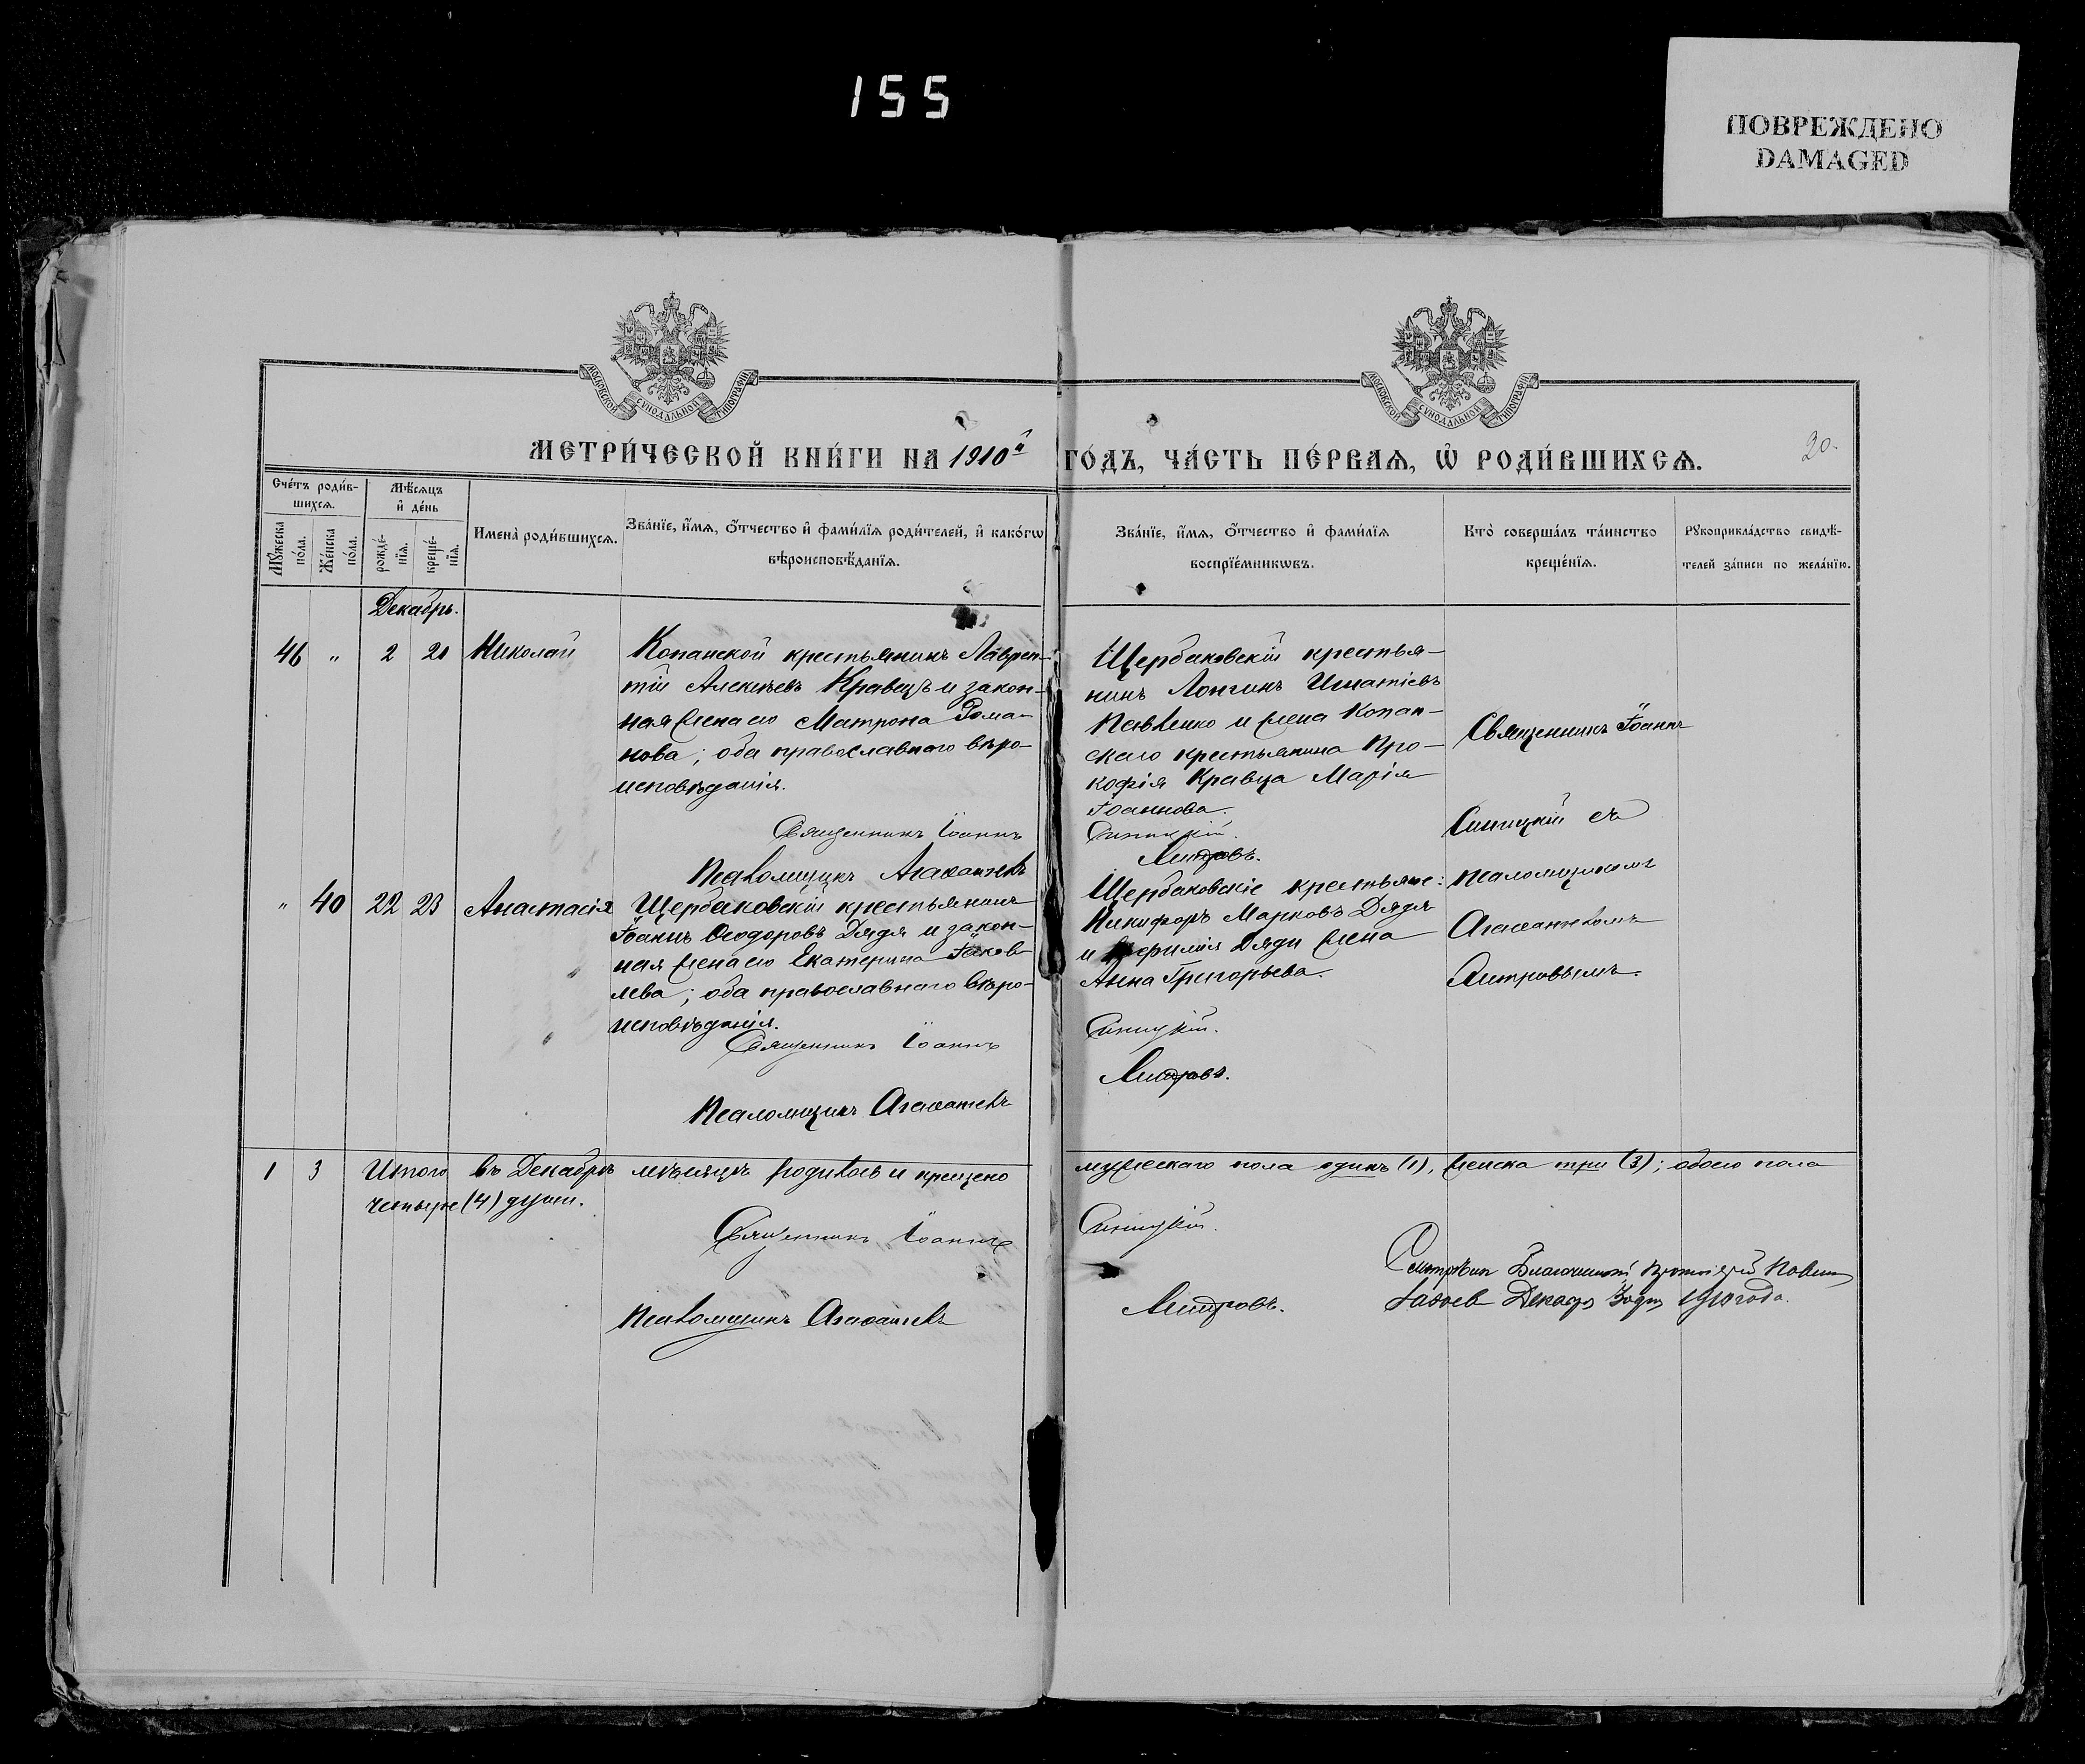 155
ПОВРЕЖДЕНО
DAMAGED
МОСКОВСКОЙ СѴНОДАЛЬНОЙ ТИПОГРАФІИ
МОСКОВСКОЙ СѴНОДАЛЬНОЙ ТИПОГРАФІИ
МЕТРИ́ЧЕСКОЙ КНИ́ГИ НА 1910й ГО́ДЪ, ЧА́СТЬ ПЕ́РВАѦ, Ѡ҆ РОДИ́ВШИХСѦ.
20.
Сче́тъ роди́в-
шихсѧ.
Мꙋ́жеска
по́ла.
Же́нска
по́ла.
Мѣ́сѧцъ
и҆ де́нь
рожде́-
нїѧ.
креще́-
нїѧ.
Имена̀ роди́вшихсѧ.
Зва́нїе, и҆́мѧ, ѻ҆́тчество и҆ фами́лїѧ роди́телей, и҆ како́гѡ
вѣроисповѣ́данїѧ.
Зва́нїе, и҆́мѧ, ѻ҆́тчество и҆ фами́лїѧ
воспрїе́мникѡвъ.
Кто̀ соверша́лъ та́инство
креще́нїѧ.
Рꙋкоприкла́дство свидѣ́-
телей за́писи по жела́нїю.
Декабрь.
46 " 2 21 Николай
Копанской крестьянинъ Лаврен-
тій Алексѣевъ Кравецъ и закон-
ная жена его Матрона Рома-
нова; оба православнаго вѣро-
исповѣданія.
Священникъ Іоаннъ
Псаломщикъ Агаѳангелъ
Щербаковскій крестья-
нинъ Лонгинъ Игнатіевъ
Павленко и жена Копан-
скаго крестьянина Про-
кофія Кравца Марія
Іоаннова.
Синицкій.
Священникъ Іоаннъ
Синицкій съ
псаломщикомъ
Агаѳангеломъ
" 40 22 23 Анастасія
Щербаковскій крестьянинъ
Іоаннъ Ѳеодоровъ Дядя и закон-
ная жена его Екатерина Іаков-
лева; оба православнаго вѣро-
исповѣданія.
Священникъ Іоаннъ
Псаломщикъ Агаѳангелъ
Щербаковскіе крестьяне:
Никифоръ Марковъ Дядя
и Дяди жена
Анна Григорьева.
Синицкій.
1 3 Итого въ Декабрѣ мѣсяцѣ родилось и крещено мужескаго пола одинъ (1), женска три (3); обоего пола
четыре (4) души.
Священникъ Іоаннъ Синицкій.
Псаломщикъ Агаѳангелъ
Благочинный Протоіерей
Декабр 1910 года.